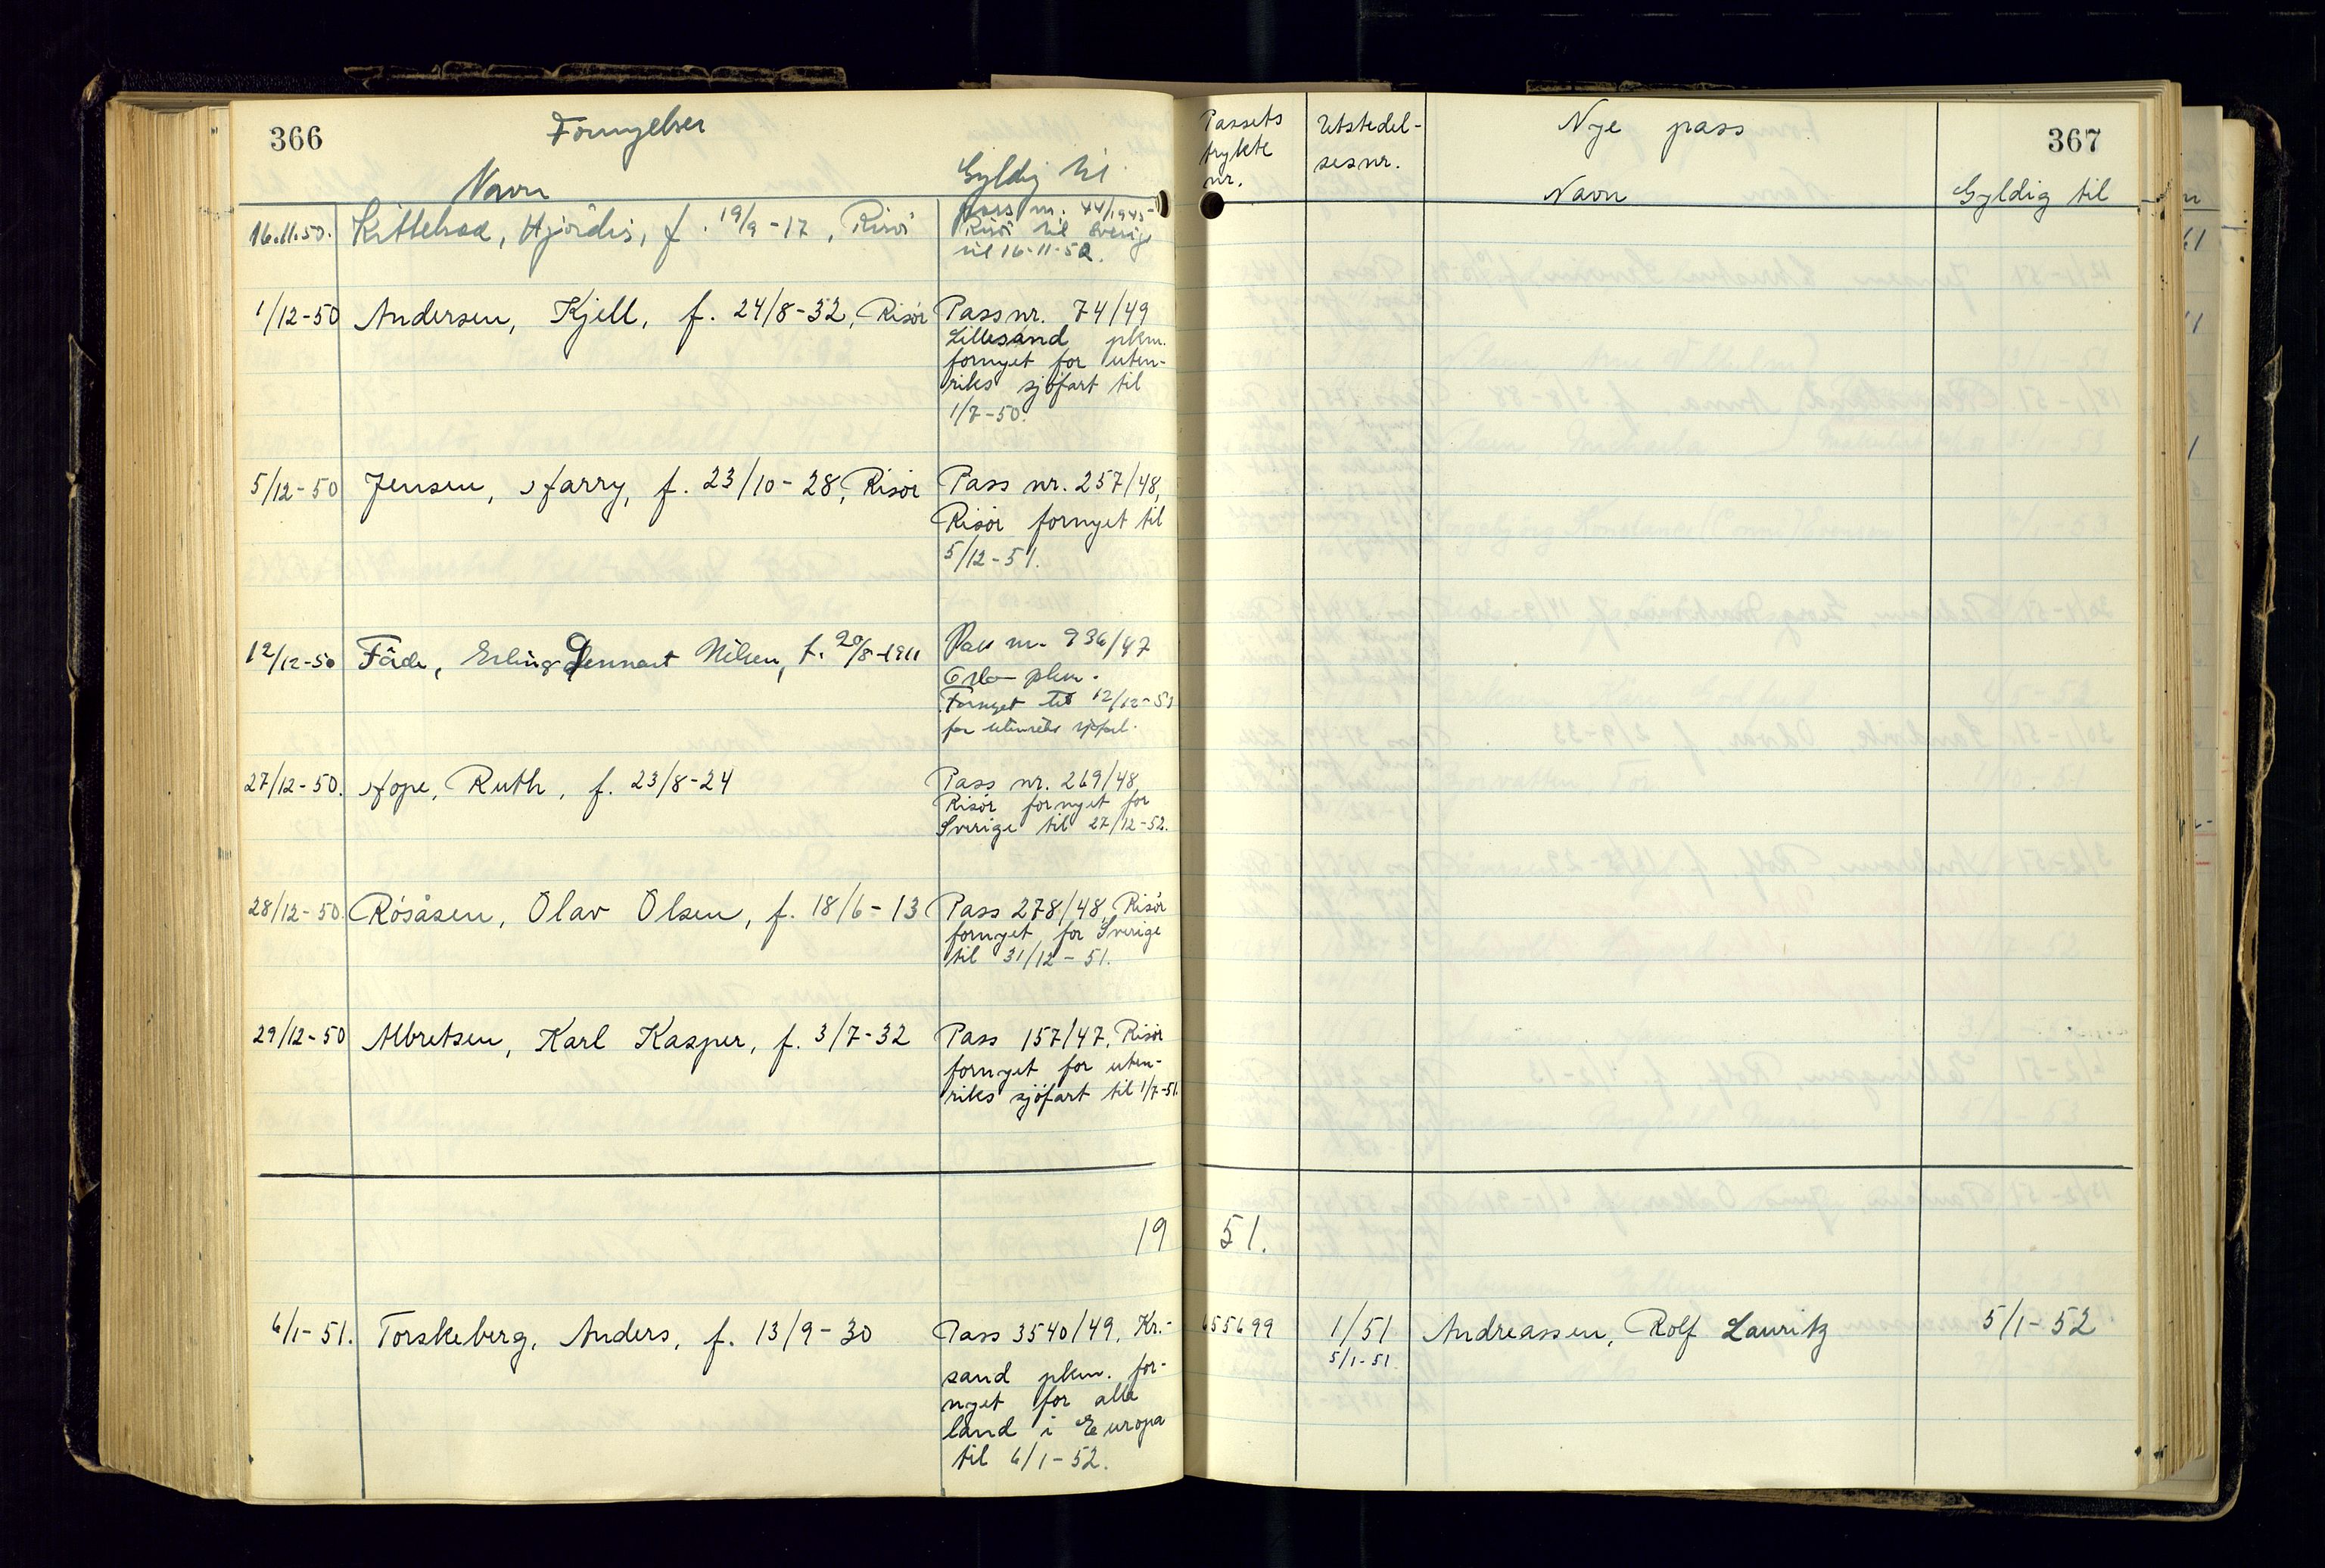 366
Fornyelser
Navn
Gyldig til
16.11.50. Kittelsaa, Hjördis, f. 19/9-17, Risör
pass nr. 44/1945
Risör til Sverige
til 16-11-52.
1/12-50 Andersen, Kjell, f. 24/8-32, Risör
Passnr. 74/49
Lillesand pkm.
fornyet for uten-
riks sjöfart til
1/7-50.
5/12-50 Jensen, Harry, f. 23/10-28, Risör
Pass nr. 257/48,
Risör fornyet til
5/12-51.
12/12-50 Fåde, Erling Lennart Nilsen, f. 20/8-1911
Pass nr. 936/47
Oslo pkm.
Fornyet til 12/12-52
for utenriks sjöfart.
27/12-50. Hope, Ruth, f. 23/8-24
Pass nr. 269/48
Risör fornyet for
Sverige til 27/12-52.
28/12-50. Rösåsen, Olav Olsen, f. 18/6-13
Pass 278/48, Risör
fornyet for Sverige
til 31/12-51.
29/12-50 Albretsen, Karl Kasper, f. 3/7-32
Pass 157/47, Risör
fornyet for uten-
riks sjöfart til 1/7-51.
19
6/1-51. Torskeberg, Anders, f. 13/9-30
Pass 3540/49, Kr.-
sand pkm. for-
nyet for alle
land i Europa
til 6/1-52.
Passets
trykte
nr.
Utstedel-
sesnr.
Nye pass
367
Navn
Gyldig til
51.
655699 1/51 Andreassen, Rolf Lauritz 5/1-52
5/1-51.